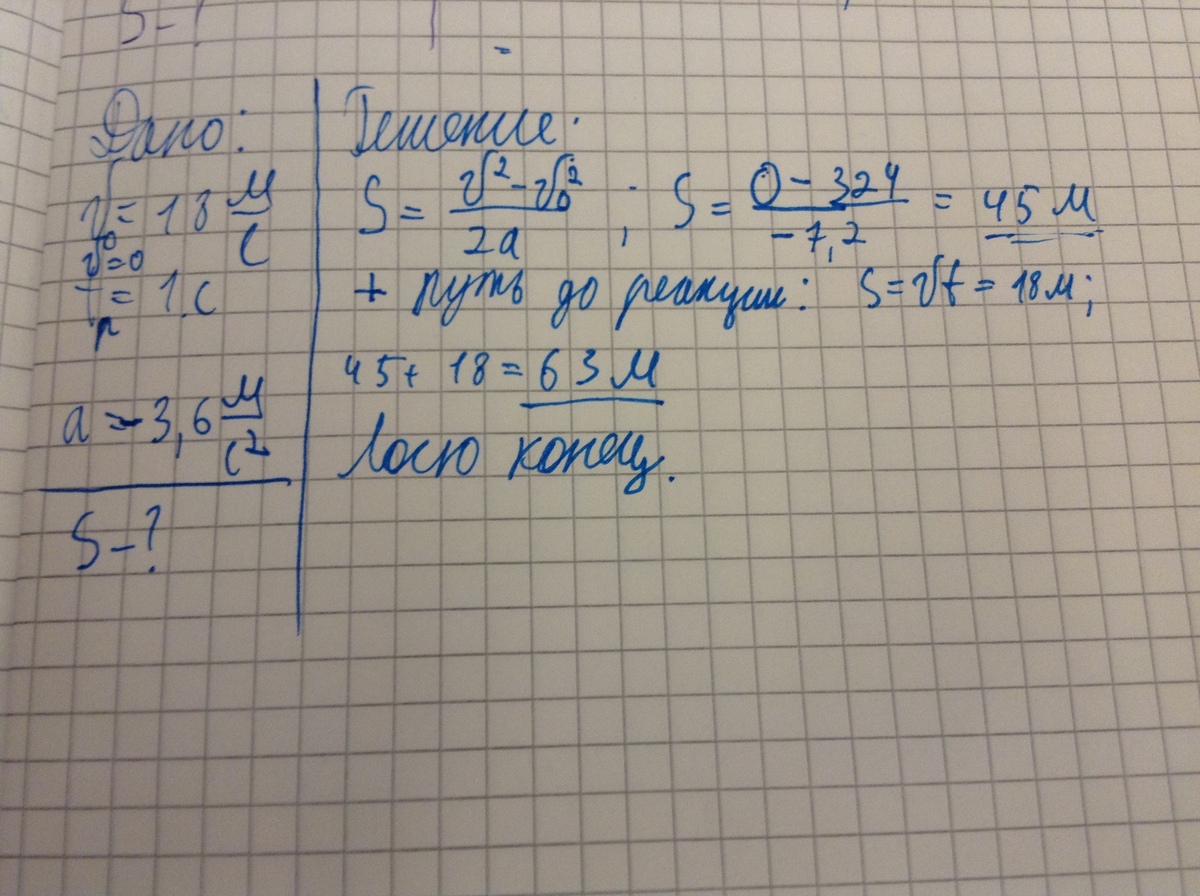 S-?
Дано:
v₀ = 18 м/с
v = 0
tₚ = 1 с
a = -3,6 м/с²
S-?
Решение:
S = (v² - v₀²)/2a ; S = (0 - 324)/(-7,2) = 45 м
+ путь до реакции: S = vt = 18м;
45 + 18 = 63 м
Лосю конец.